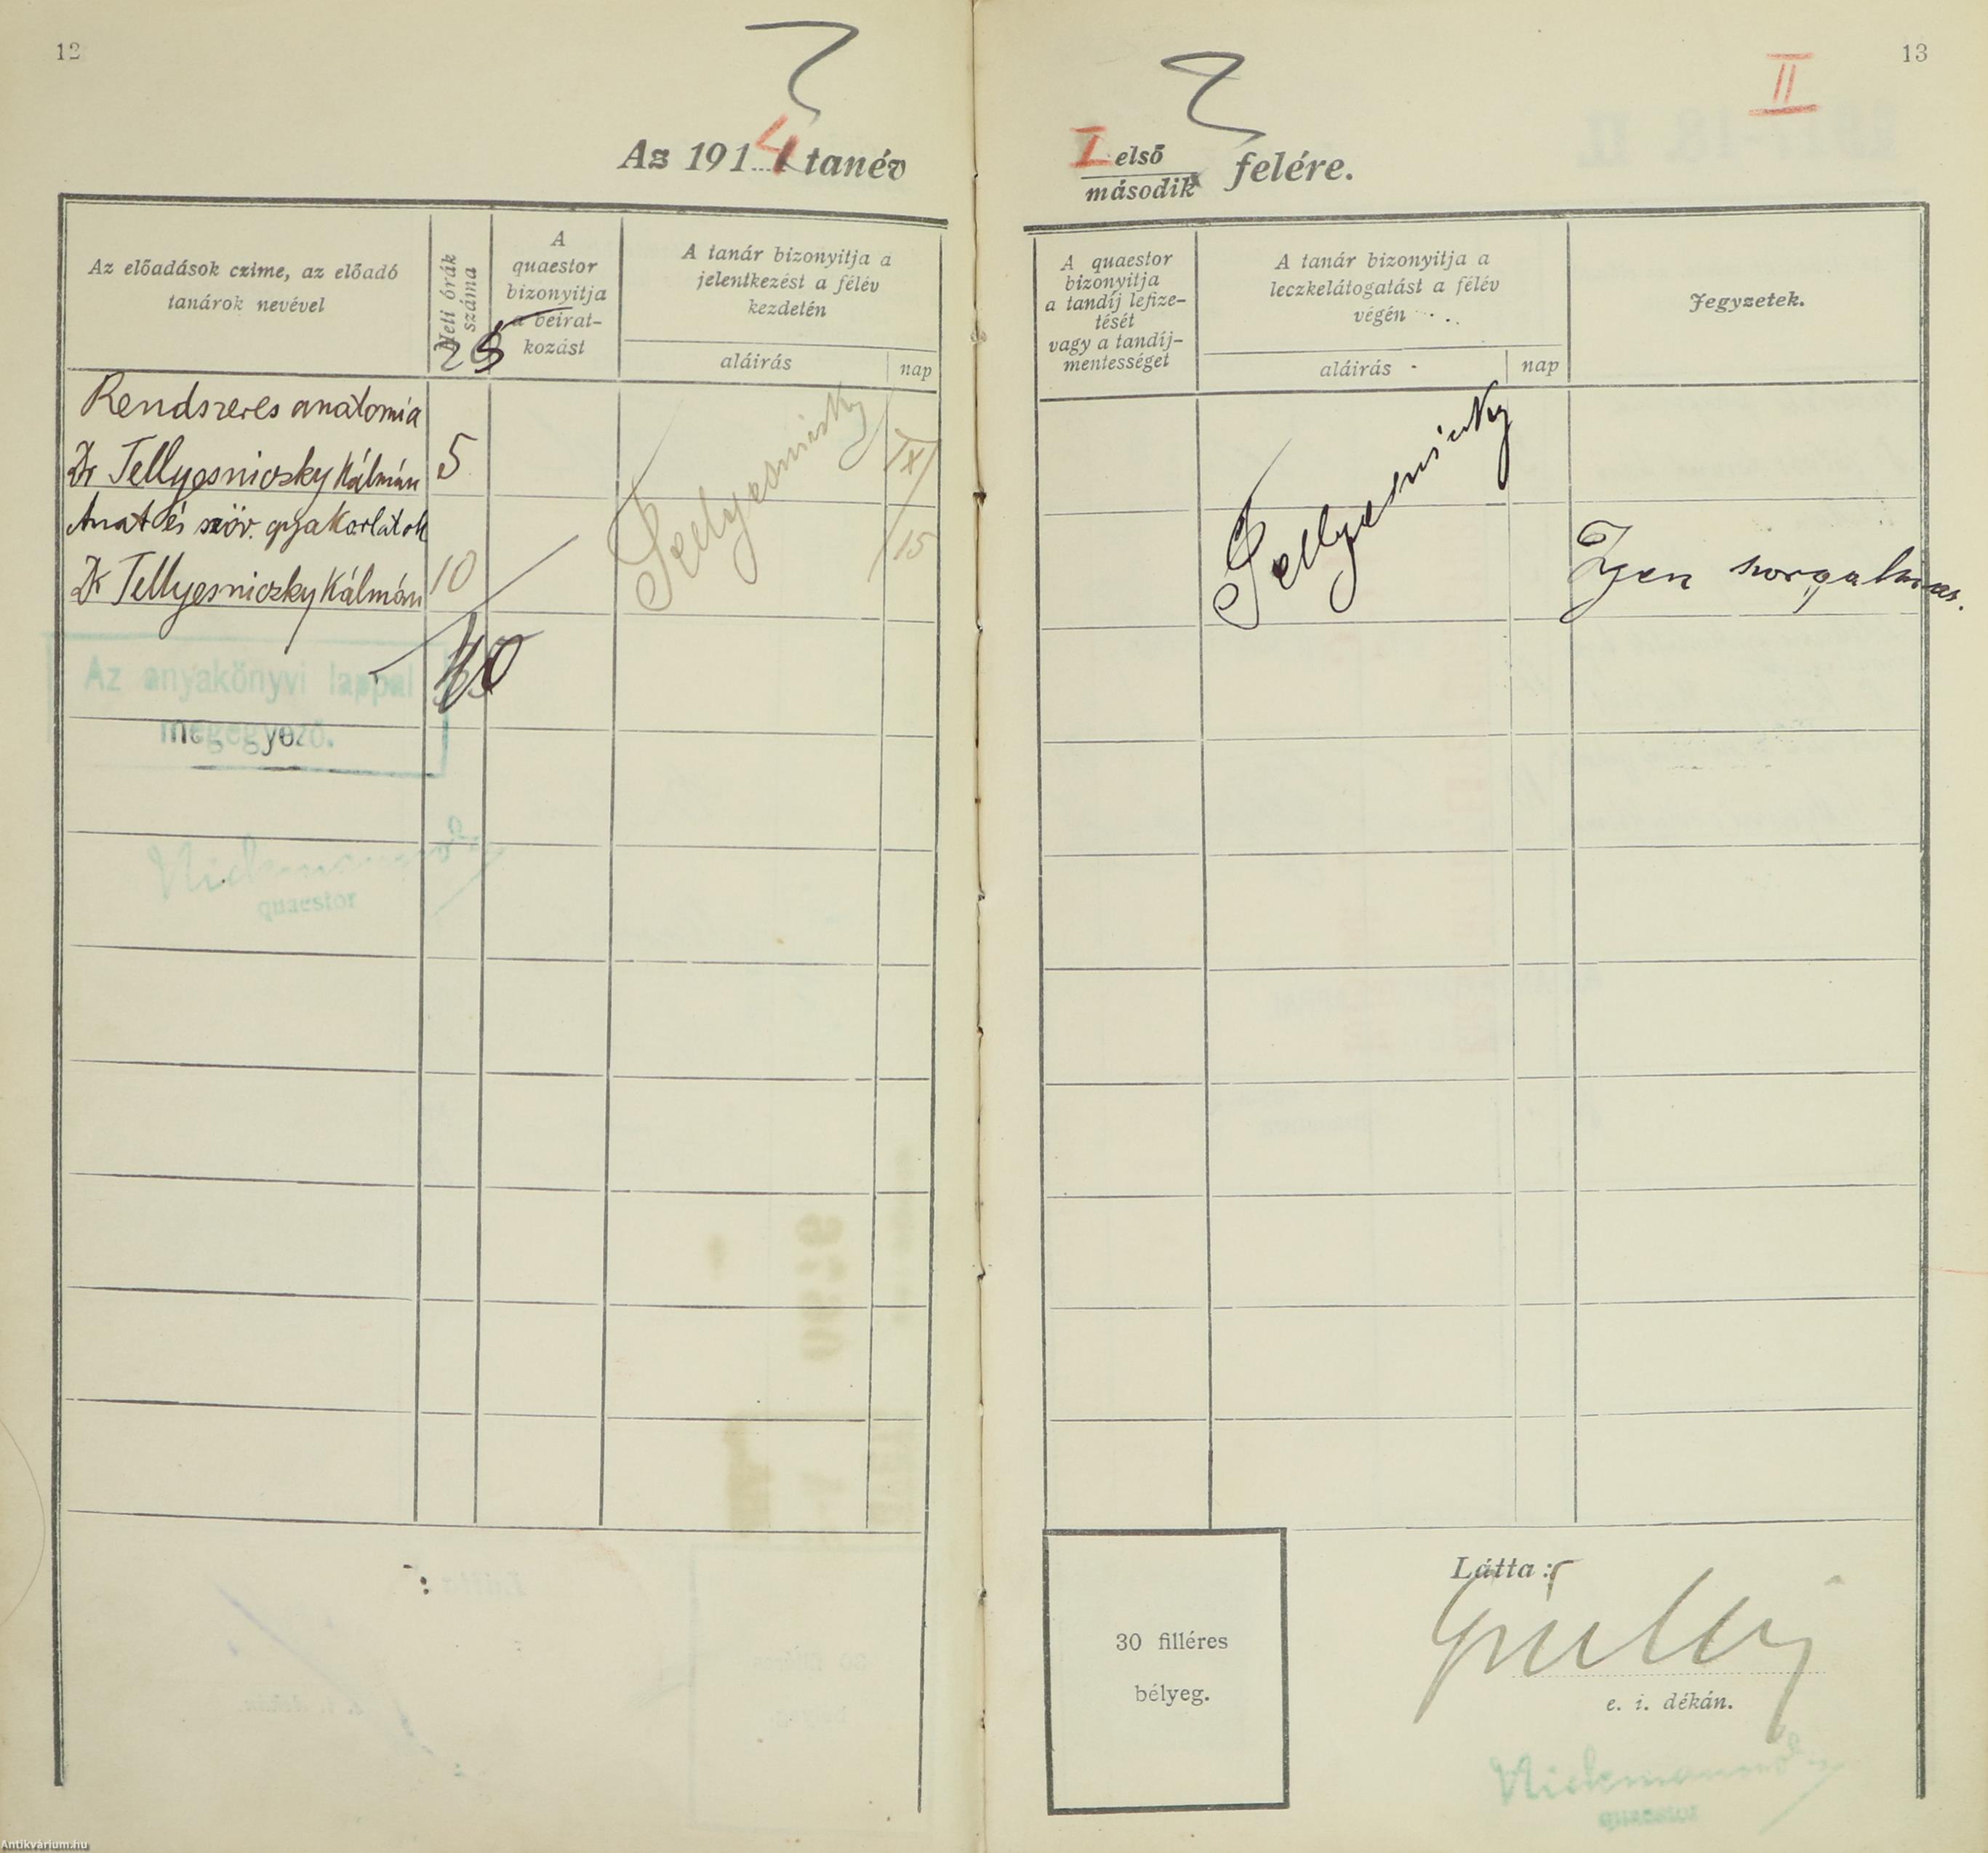 12
Az 191...4 tanév
Az előadások czime, az előadó
tanárok nevével
Heti órák
száma
A
quaestor
bizonyitja
a beirat-
kozást
A tanár bizonyitja a
jelentkezést a félév
kezdetén
aláirás
nap
Rendszeres anatomia
Dr Tellyesniczky Kálmán
5
Anat és szöv. gyakorlatok
Dr Tellyesniczky Kálmán
10
Tellyesniczky
IX/
15
Az anyakönyvi lappal
megegyező.
quaestor
13
II
I első
második
felére.
A quaestor
bizonyitja
a tandíj lefize-
tését
vagy a tandíj-
mentességet
A tanár bizonyitja a
leczkelátogatást a félév
végén
aláirás
nap
Jegyzetek.
Tellyesniczky
Igen szorgalmas.
30 filléres
bélyeg.
Látta :
e. i. dékán.
quaestor
Antikvárium.hu